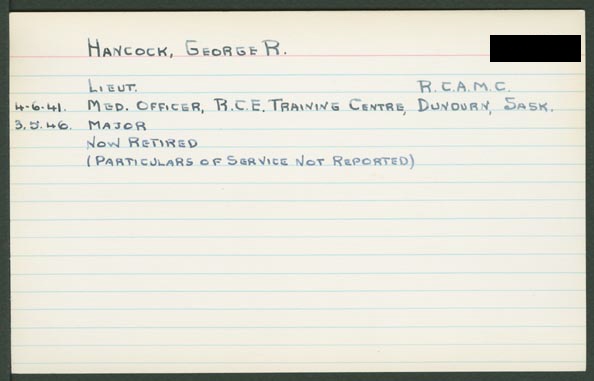 HANCOCK, GEORGE R.
LIEUT. R.C.A.M.C.
4-6-41. MED. OFFICER, R.C.E. TRAINING CENTRE, DUNDURN, SASK.
3.5.46. MAJOR
NOW RETIRED
(PARTICULARS OF SERVICE NOT REPORTED)